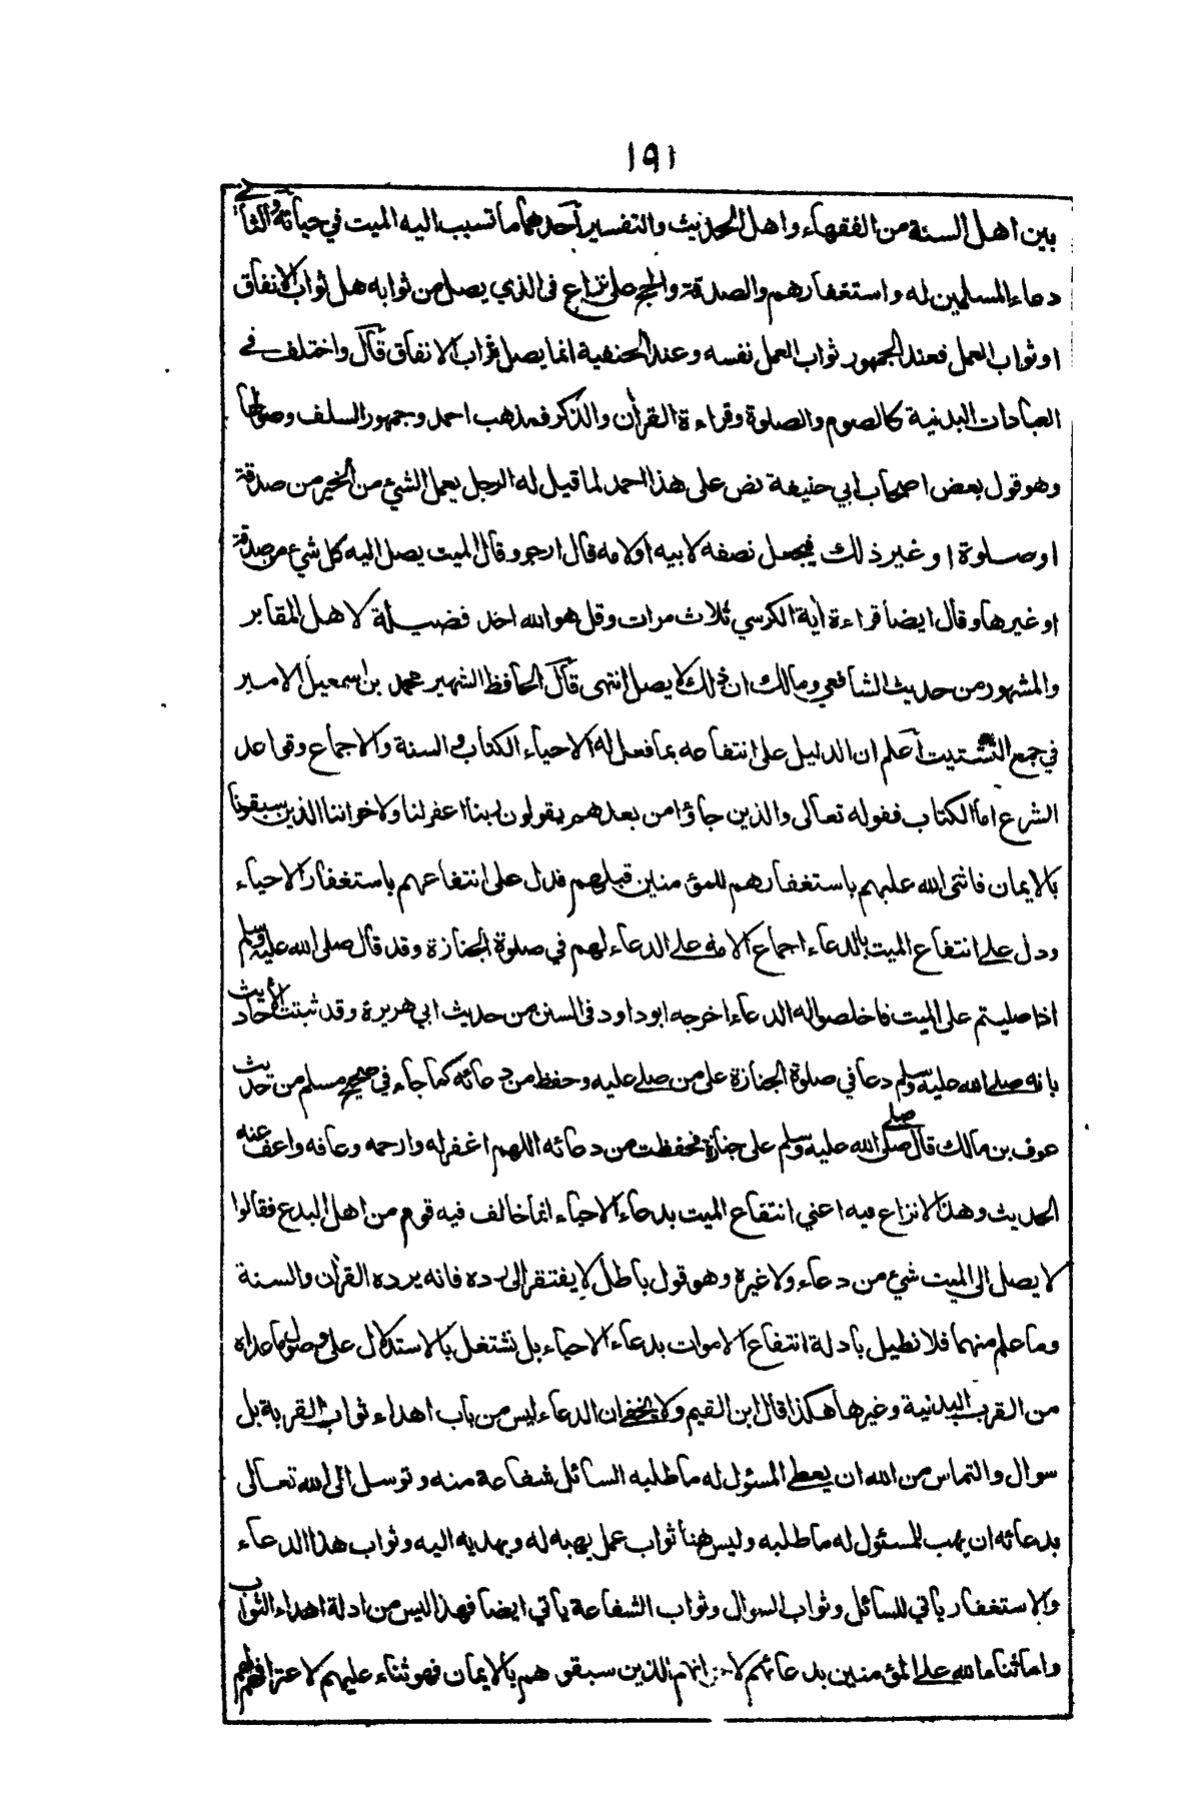 ١٩١
بين اهل السنة من الفقهاء واهل الحديث والتفسير احدهما ما تسبب اليه الميت في حياته والثاني
دعاء المسلمين له واستغفارهم والصدقة والحج على نزاع في الذي يصل من ثوابه هل ثواب الانفاق
او ثواب العمل فعند الجمهور ثواب العمل نفسه وعند الحنفية انما يصل ثواب الانفاق قال واختلف في
العبادات البدنية كالصوم والصلوة وقراءة القرأن والذكر فمذهب احمد وجمهور السلف وصولها
وهو قول بعض اصحاب ابي حنيفة نص على هذا احمد لما قيل له الرجل يعمل الشيء من الخير من صدقة
او صلوة او غير ذلك فيجعل نصفه لابيه اولامه قال ارجو وقال الميت يصل اليه كل شيء من صدقة
او غيرها وقال ايضا قراءة أية الكرسي ثلاث مرات وقل هو الله احد فضيلة لاهل المقابر
والمشهور من حديث الشافعي ومالك ان ذلك لا يصل انتهى قال الحافظ الشهير محمد بن اسمعيل الامير
في جمع التشتيت اعلم ان الدليل على انتفاعه بما فعل له الاحياء الكتاب والسنة والاجماع وقواعد
الشرع اما الكتاب فقوله تعالى والذين جاؤا من بعدهم يقولون ربنا اغفر لنا ولاخواننا الذين سبقونا
بالايمان فاثنى الله عليهم باستغفارهم للمؤمنين قبلهم فدل على انتفاعهم باستغفار الاحياء
ودل على انتفاع الميت بالدعاء اجماع الامة على الدعاء لهم في صلوة الجنازة وقد قال صلى الله عليه وسلم
اذا صليتم على الميت فاخلصوا له الدعاء اخرجه ابو داود في السنن من حديث ابي هريرة وقد ثبتت الأحاديث
بانه صلى الله عليه وسلم دعا في صلوة الجنازة على من صلى عليه وحفظ من دعائه كما جاء في صحيح مسلم من حديث
عوف بن مالك قال صلى صلى الله عليه وسلم على جنازة فحفظت من دعائه اللهم اغفر له وارحمه وعافه واعف عنه
الحديث وهذا لا نزاع فيه اعني انتفاع الميت بدعاء الاحياء انما خالف فيه قوم من اهل البدع فقالوا
لا يصل الى الميت شيء من دعاء ولا غيره وهو قول باطل لا يفتقر الى رده فانه يرده القرأن والسنة
وما علم منهما فلا نطيل بادلة انتفاع الاموات بدعاء الاحياء بل نشتغل بالاستدلال على وصول ما عداه
من القرب البدنية وغيرها هكذا قال ابن القيم ولا يخفى ان الدعاء ليس من باب اهداء ثواب القربة بل
سوال والتماس من الله ان يعطي المسئول له ما طلبه السائل شفاعة منه وتوسل الى الله تعالى
بدعائه ان يهب للمسئول له ما طلبه وليس هنا ثواب عمل يهبه له ويهديه اليه وثواب هذا الدعاء
والاستغفار يأتي للسائل وثواب السوال وثواب الشفاعة يأتي ايضا فهذا ليس من ادلة اهداء الثواب
واما ثناء الله على المؤمنين بدعائهم الذين سبقوهم بالايمان فهو ثناء عليهم لاعترافهم